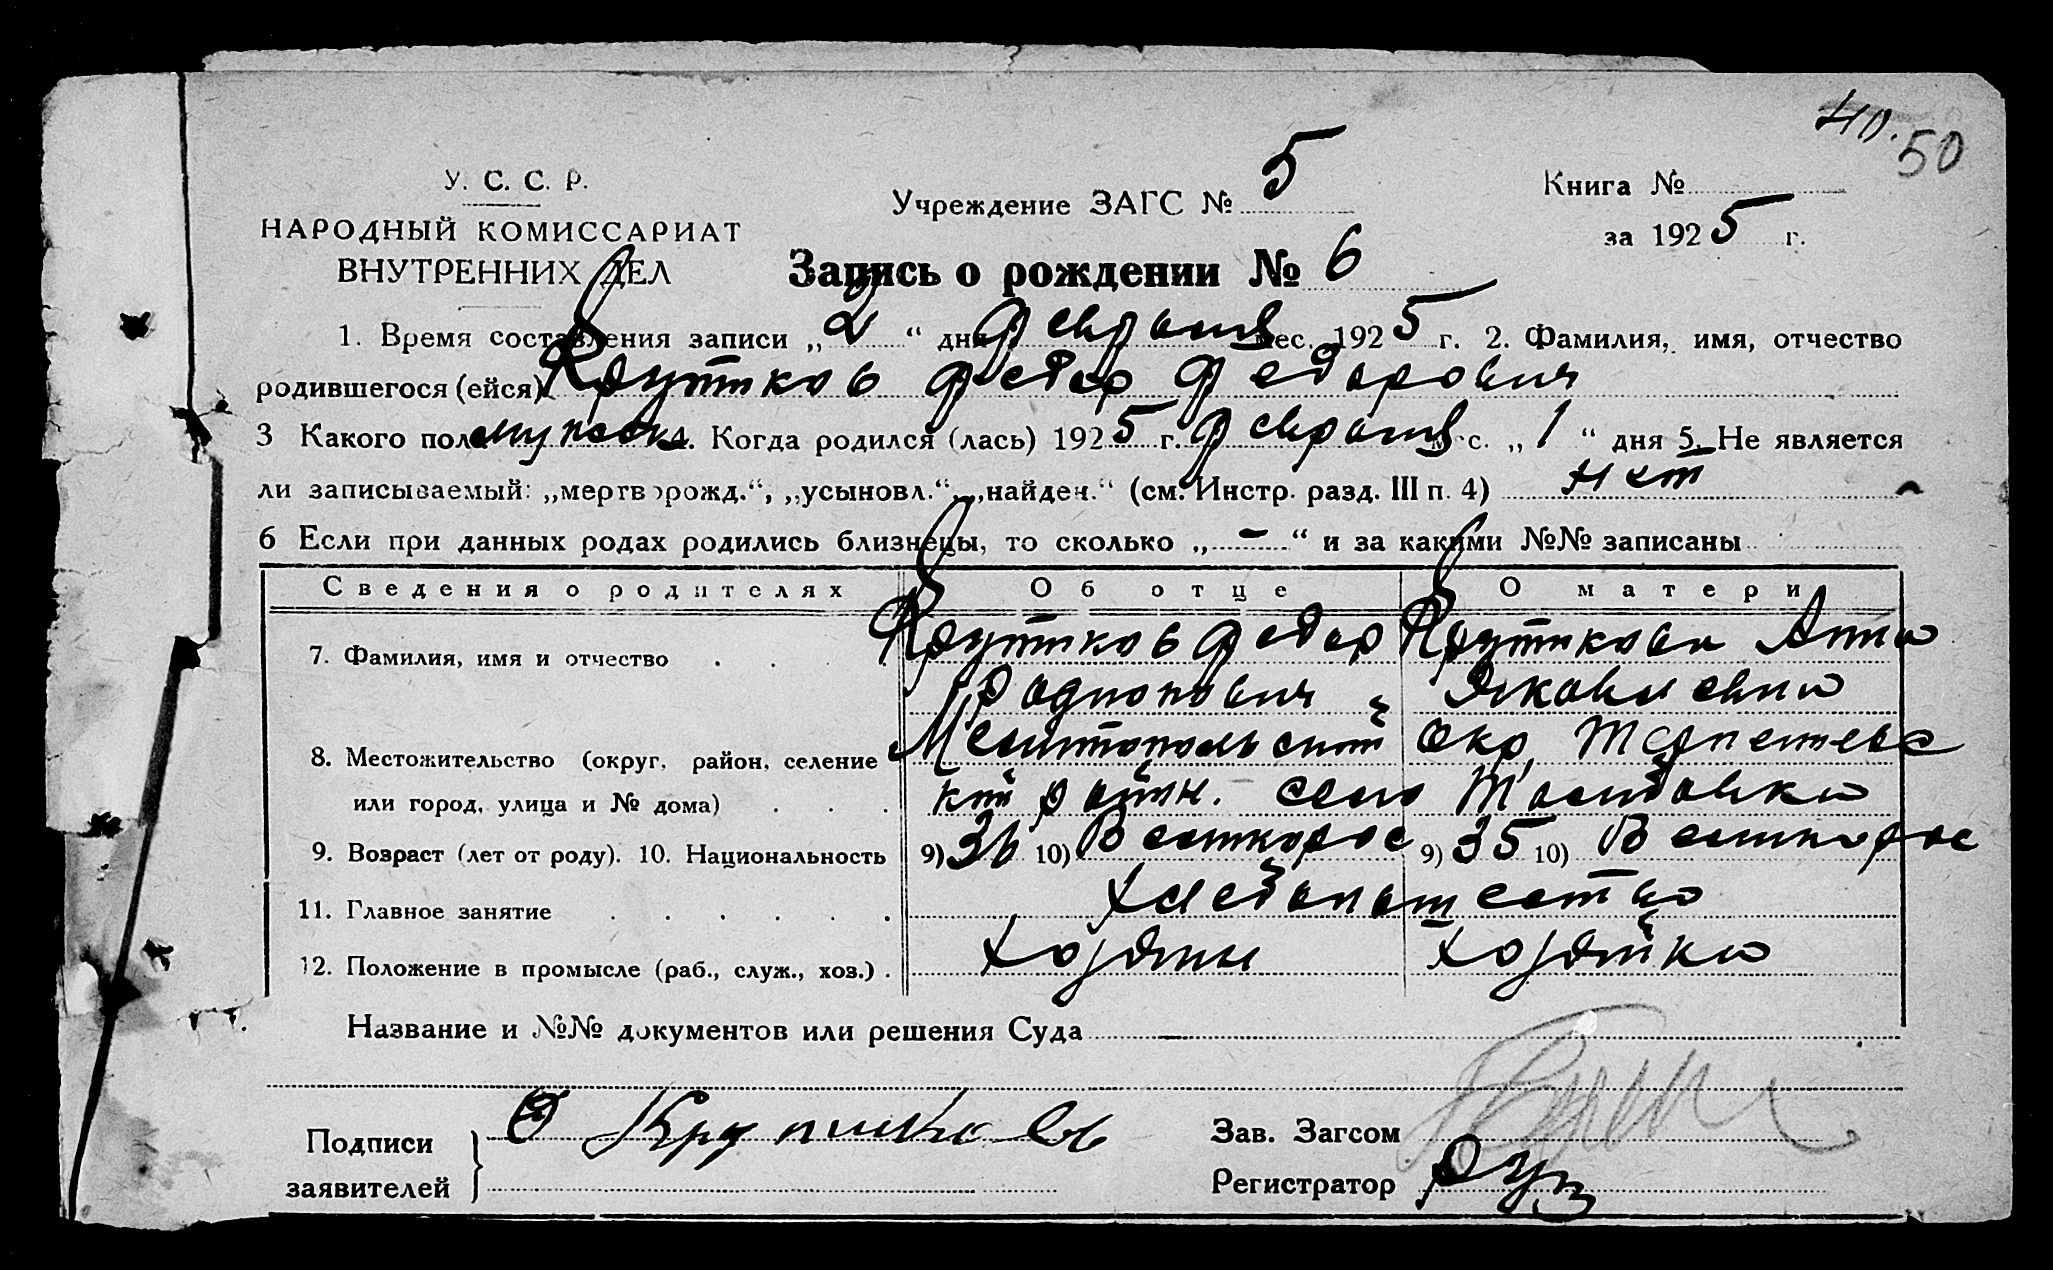 40.
50
У. С. С. Р.
НАРОДНЫЙ КОМИССАРИАТ
ВНУТРЕННИХ ДЕЛ
Учреждение ЗАГС № 5
Книга №
за 1925 г.
Запись о рождении № 6
1. Время составления записи „2“ дня февраля мес. 1925 г. 2. Фамилия, имя, отчество
родившегося (ейся) Крутков Федор Федорович
3 Какого пола мужска 4. Когда родился (лась) 1925 г. февраля мес. „1“ дня 5. Не является
ли записываемый: „мертворожд.“, „усыновл.“, „найден.“ (см. Инстр. разд. III п. 4) нет
6 Если при данных родах родились близнецы, то сколько „-“ и за какими №№ записаны
Сведения о родителях Об отце О матери
7. Фамилия, имя и отчество Крутков Федор Круткова Анна
Родионович Яковлевна
8. Местожительство (округ, район, селение Мелитопольский окр
или город, улица и № дома) район. село
9. Возраст (лет от роду). 10. Национальность 9) 36 10) Великорос 9) 35 10) Великорос
11. Главное занятие Хлебопашество
12. Положение в промысле (раб., служ., хоз.) Хозяин Хозяйка
Название и №№ документов или решения Суда
Подписи
заявителей Ф Крутиков
Зав. Загсом
Регистратор